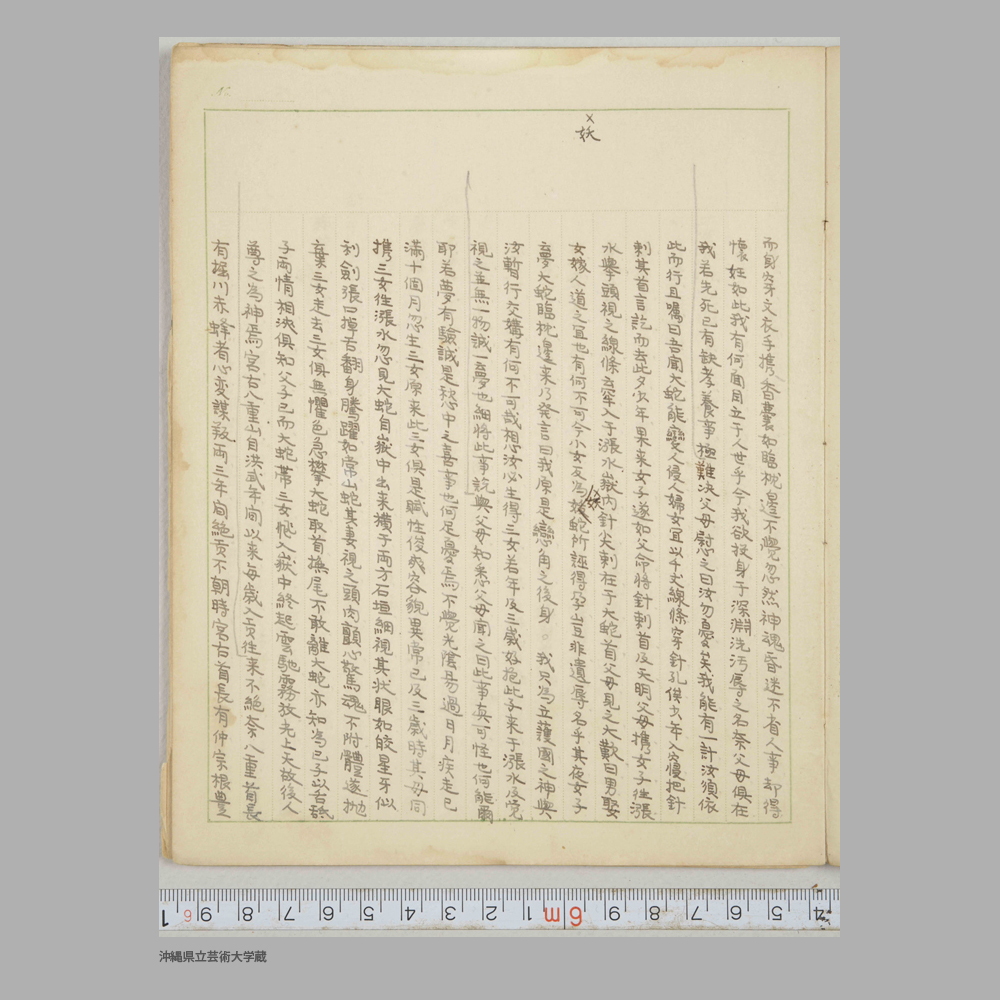 妖
而身穿文衣手携香囊如臨枕邊不覺忽然神魂昏迷不省人事却得
懷妊如此我有何面目立于人世乎今我欲投身于深淵洗汚辱之名奈父母俱在
我若先死已有缺孝養事極難決父母慰之曰汝勿憂矣我能有一計汝須依
此而行且囑曰吾聞大蛇能變人侵人婦女宜以千丈線條穿針孔俟少年入幔把針
刺其首言訖而去此夕少年果来女子遂如父命將針刺首及天明父母携女子往漲
水擧頭視之線條直牽入于漲水嶽内針尖刺在于大蛇首父母見之大歎曰男娶
女嫁人道之宜也有何不可今小女反為妖蛇所誣得孕豈非遺辱名乎其夜女子
夢大蛇臨枕邊来乃発言曰我原是戀角之後身。我只為立護國之神與
汝暫行交媾有何不可哉想汝必生得三女若年及三歳好抱此子来于漲水及覺
視之並無一物誠一夢也細將此事説與父母知悉父母聞之曰此事真可怪也何能爾
耶若夢有驗誠是愁中之喜事也何足憂焉不覺光陰易過日月疾走已
滿十個月忽生三女原来此三女俱是賦性俊爽容貌異常已及三歳時其母同
携三女往漲水忽見大蛇自嶽中出来横于両方石垣細視其状眼如皎星牙似
利劍張口掉舌翻身騰躍如常山蛇其妻視之頭肉顫心驚魂不附體遂抛
棄三女走去三女俱無懼色急攀大蛇取首撫尾不敢離大蛇亦知為己子以舌舐
子両情相決俱知父子已而大蛇帶三女飛入嶽中終起雲馳霧放光上天故後人
尊之為神焉宮古八重山自洪武年间以来毎歳入貢往来不絶奈八重首長
有掘川赤蜂者心変謀叛両三年间絶貢不朝時宮古首長有仲宗根豊
沖縄県立芸術大学蔵